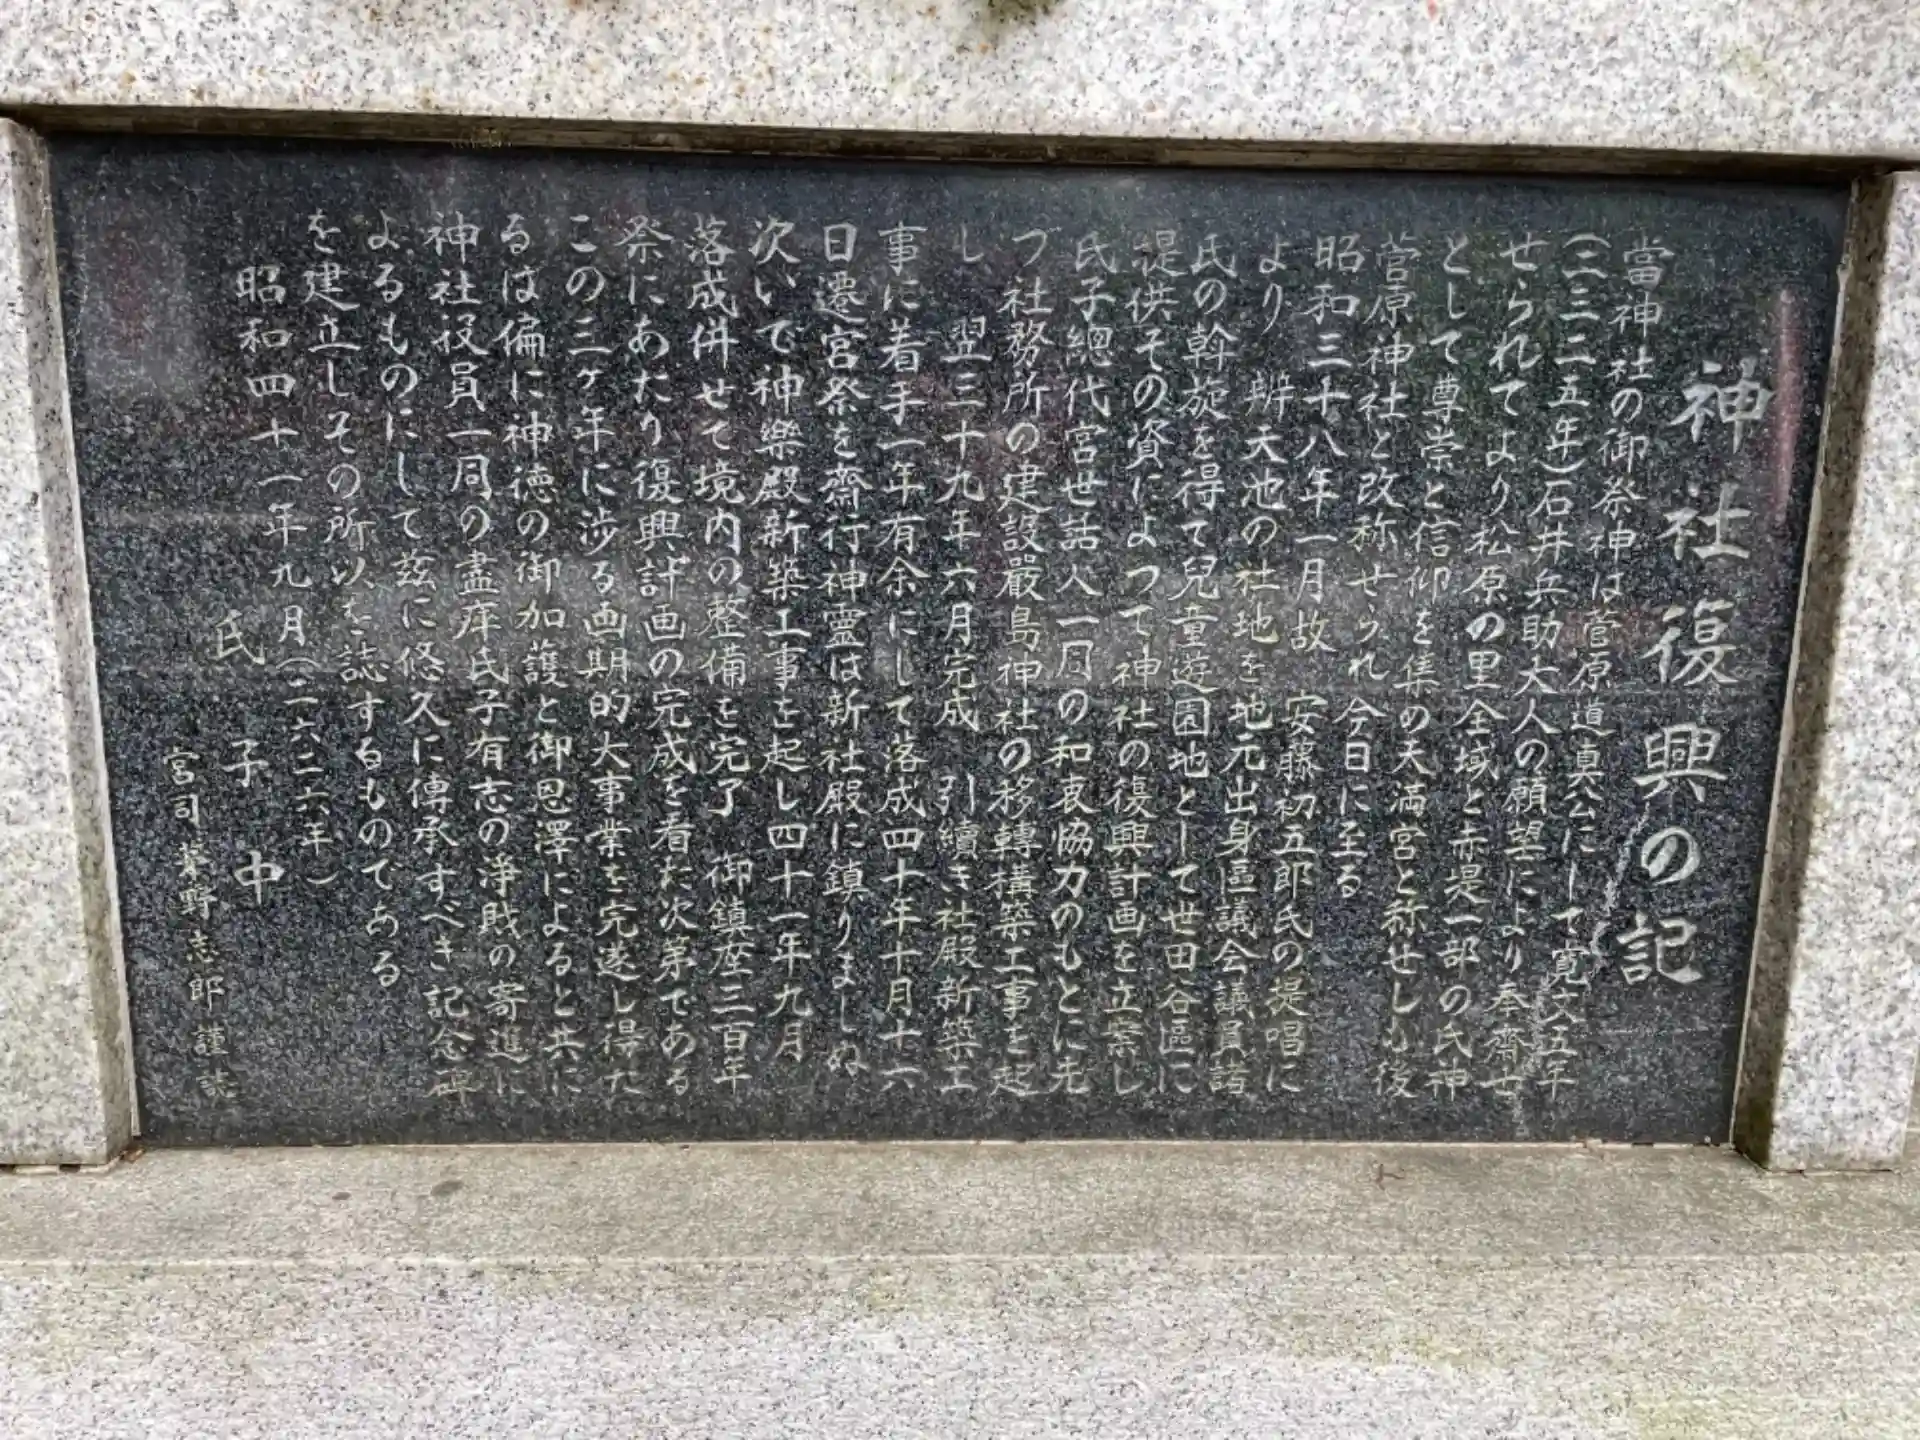 神社復興の記
當神社の御祭神は菅原道真公にして寛文五年
(二三二五年)石井兵助大人の願望により奉齋せ
せられてより松原の里全域と赤堤一部の氏神
として尊崇と信仰を集め天満宮と称せしも後
菅原神社と改称せられ今日に至る
昭和三十八年一月故 安藤初五郎氏の提唱に
より 辨天池の社地を地元出身區議会議員諸
氏の斡旋を得て兒童遊園地として世田谷區に
提供その資によつて神社の復興計画を立案し
氏子總代宮世話人一同の和衷協力のもとに先
づ社務所の建設嚴島神社の移轉構築工事を起
し 翌三十九年六月完成 引續き社殿新築工
事に着手一年有余にして落成四十年十月十六
日遷宮祭を齋行神霊は新社殿に鎮りましぬ
次いで神樂殿新築工事を起し四十一年九月
落成併せて境内の整備を完了 御鎮座三百年
祭にあたり復興計画の完成を看た次第である
この三ヶ年に渉る画期的大事業を完遂し得た
るは偏に神徳の御加護と御恩澤によると共に
神社役員一同の盡瘁氏子有志の淨財の寄進に
よるものにして茲に悠久に傳承すべき記念碑
を建立しその所以を誌するものである
昭和四十一年九月(二六二六年)
氏子中
宮司 野志郎謹誌